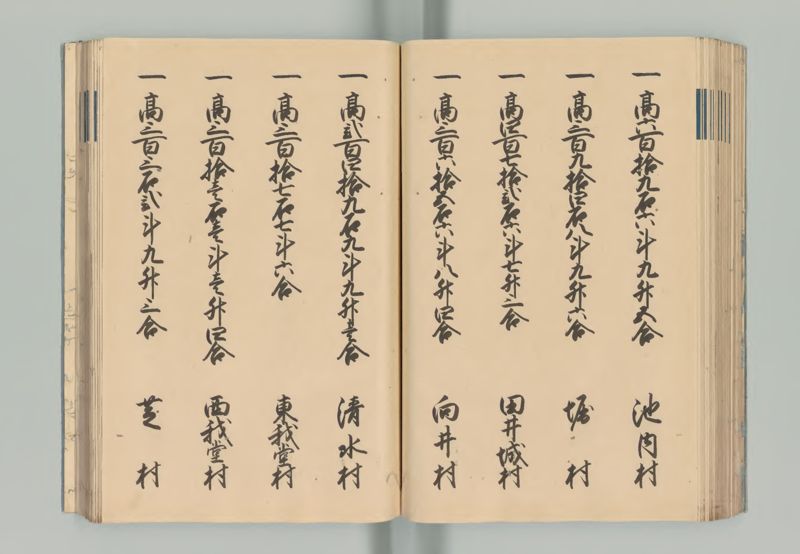 一 高六百拾九石六斗九升五合 池内村
一 高三百九拾四石八斗九升六合 堀村
一 高四百七拾弐石六斗七升二合 田井城村
一 高三百六拾五石六斗八升四合 向井村
一 高弐百四拾九石九斗九升壱合 清水村
一 高三百拾七石七斗六合 東我堂村
一 高三百拾壱石壱斗壱升四合 西我堂村
一 高三百三石弐斗九升三合 芝村